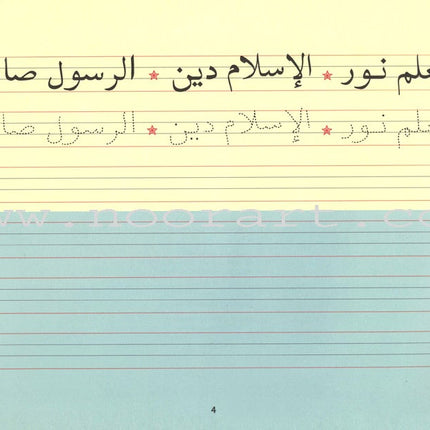 نور ★ الإسلام دين ★ الرسول
نور ★ الإسلام دين ★ الرسول
www.noorart.co
4